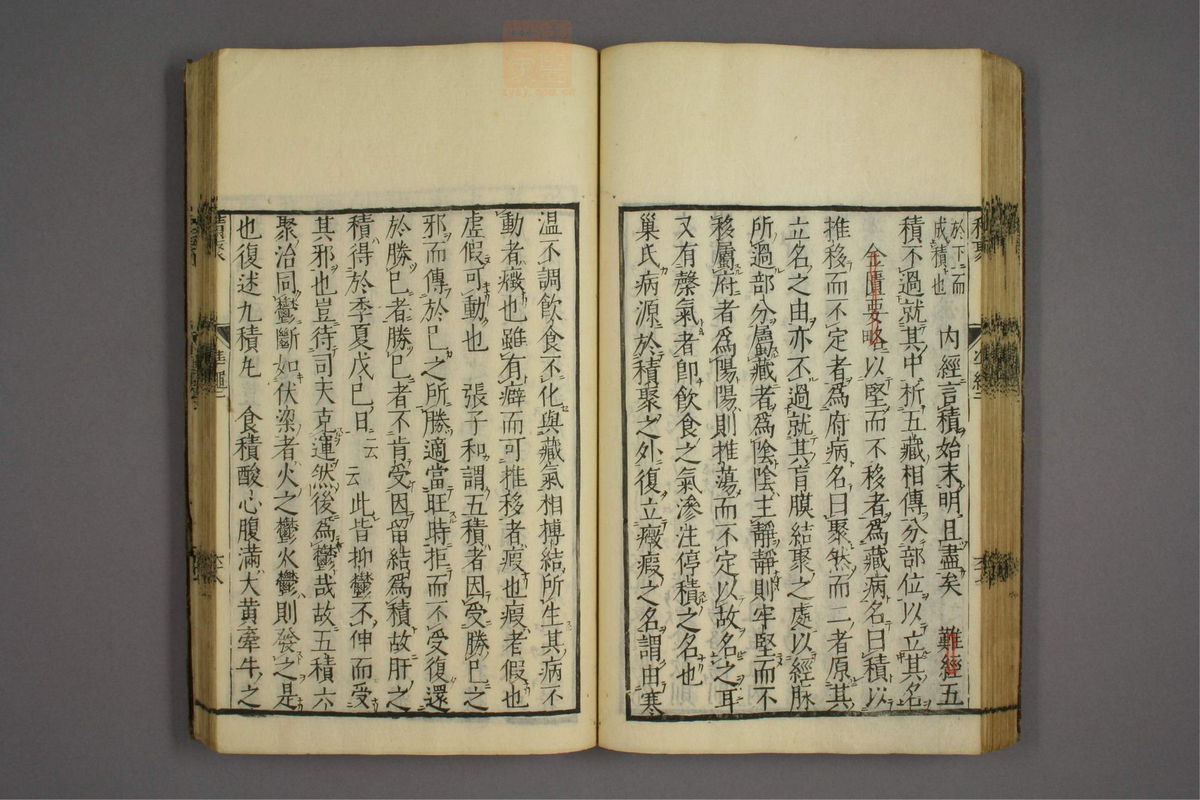 於下ニ而
成積也
內經言積始末明且盡矣　難經五
積不過就其中析五藏相傳分部位以立其名
金匱要略以堅而不移者為藏病名曰積以
推移而不定者為府病名曰聚然而二者原其
立名之由亦不過就其肓膜結聚之處以經脉
所過部分屬藏者為陰陰主靜靜則牢堅而不
移屬府者為陽陽則推蕩而不定以故名之耳
又有䅽氣者即飲食之氣滲注停積之名也
巢氏病源於積聚之外復立癥瘕之名謂由寒
温不調飲食不化與藏氣相搏結所生其病不
動者癥也雖有癖而可推移者瘕也瘕者假也
虛假可動也　張子和謂五積者因受勝已之
邪而傳於已之所勝適當旺時拒而不受復還
於勝已者勝已者不肯受因留結為積故肝之
積得於季夏戊己日云云此皆抑鬱不伸而受
其邪也豈待司天克運然後為鬱哉故五積六
聚治同鬱斷如伏梁者火之鬱火鬱則發之是
也復述九積丸　食積酸心腹滿大黃牽牛之
積聚
準繩